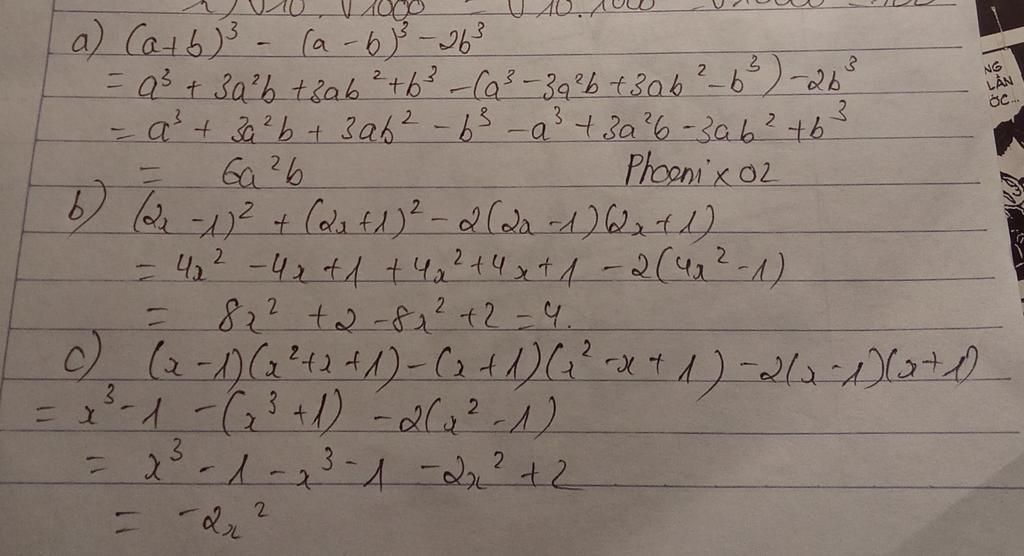 a) (a+b)³ - (a-b)³ - 2b³
= a³ + 3a²b + 3ab² + b³ - (a³ - 3a²b + 3ab² - b³) - 2b³
= a³ + 3a²b + 3ab² - b³ - a³ + 3a²b - 3ab² + b³
= 6a²b Phoenix02
b) (2x-1)² + (2x+1)² - 2(2x-1)(2x+1)
= 4x² - 4x + 1 + 4x² + 4x + 1 - 2(4x² - 1)
= 8x² + 2 - 8x² + 2 = 4.
c) (x-1)(x²+x+1) - (x+1)(x²-x+1) - 2(x-1)(x+1)
= x³ - 1 - (x³ + 1) - 2(x² - 1)
= x³ - 1 - x³ - 1 - 2x² + 2
= -2x²
NG
LÂN
ỐC...